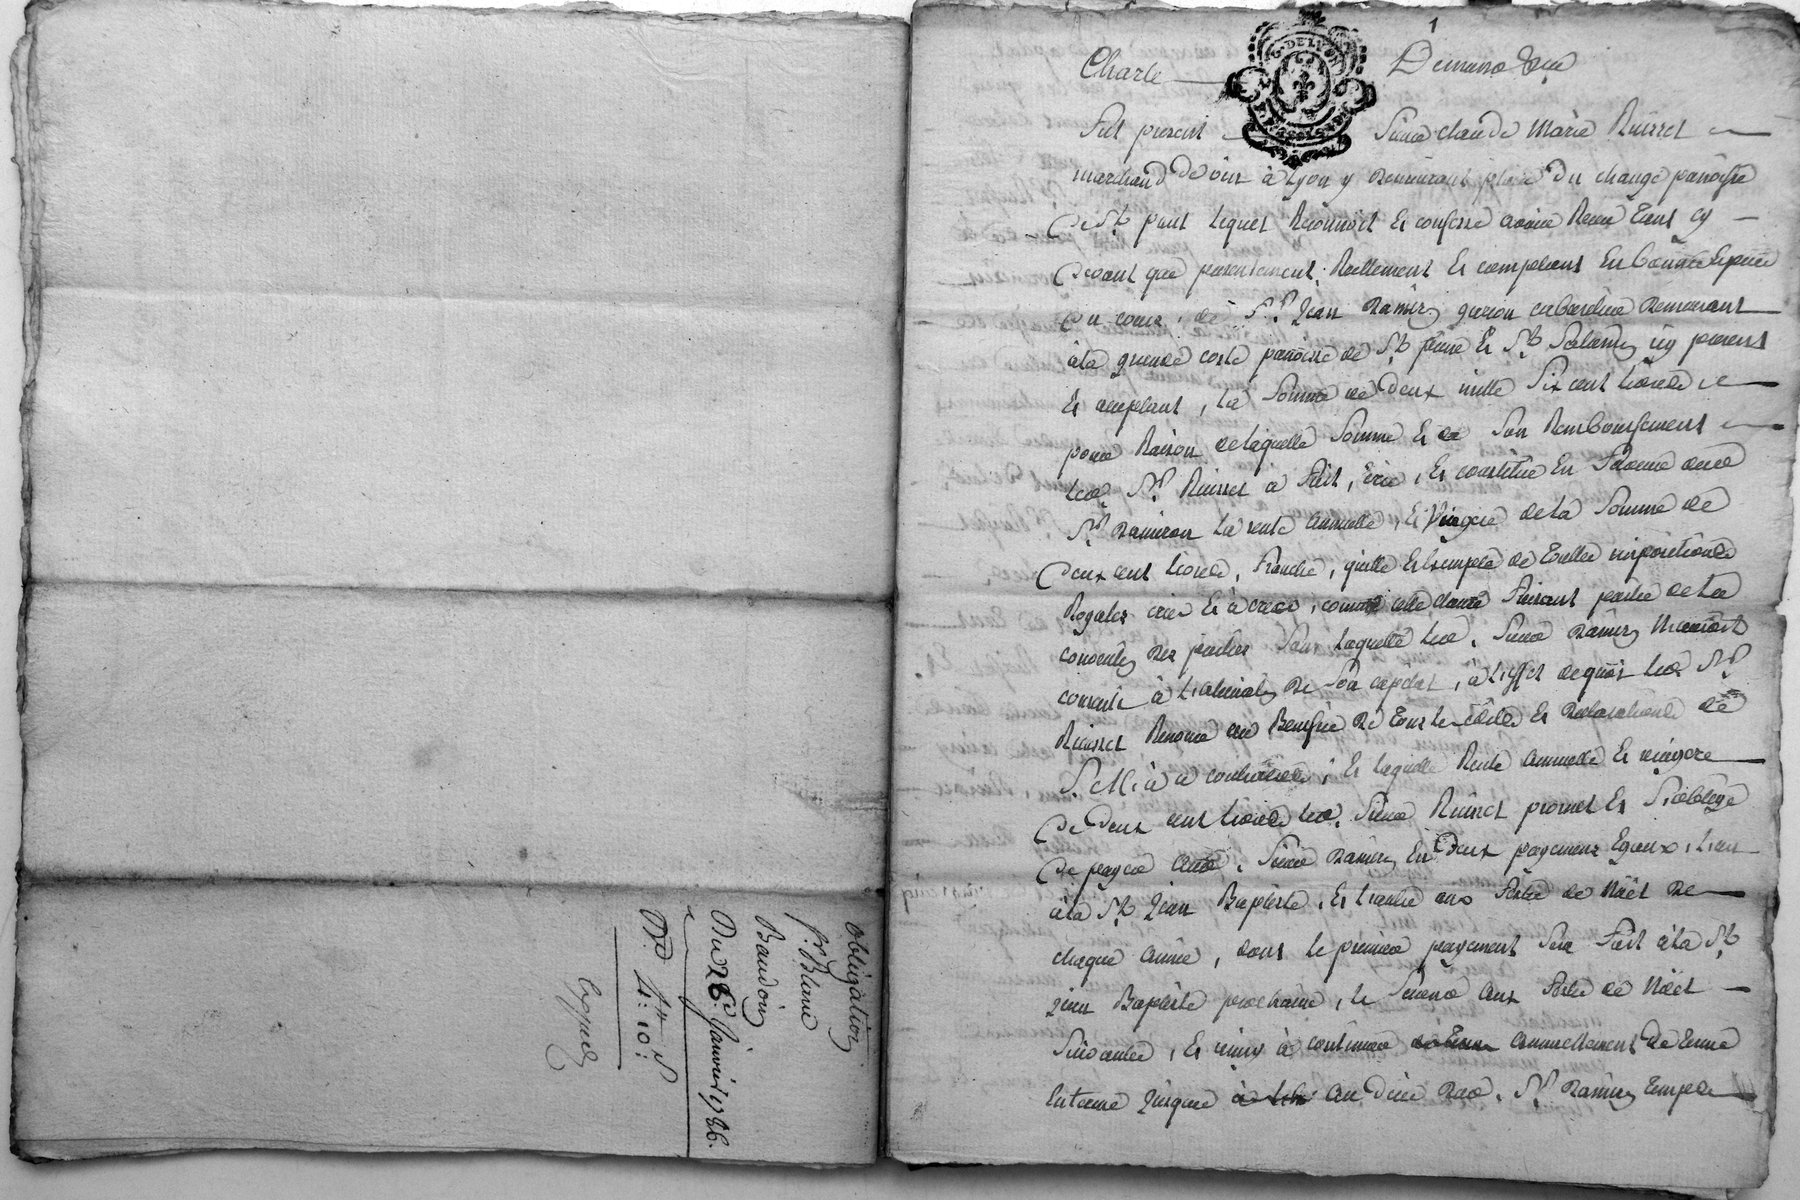 obligation
Sr. Blanc
Baudoin
Du 28e Janvier 1786.
4: 10:
1
G. DE LYON
Charle
Fut present Sieur claude Marie Ruisset
marchand à Lyon y demeurant place du change parroisse
de St. paul lequel Reconnoit et confesse avoir Receu cy
devant que presentement, Reellement et comptant En bonnes Especes
du cours, de Sr. Jean demeurant
à la grande coste parroisse de St. pierre Et St. Saturnin icy present
et acceptant, la Somme de Deux mille Six cent livres
pour Raison de laquelle Somme et de Son Remboursement
led. Sr. Ruisset a Fait, Créé, et constitué En Faveur dud.
Sr. la rente annuelle, et viagere de la Somme de
deux cent livres, Franche, quitte et Exempte de toutes impositions
Royales créés et à créer, comme cette clause Faisant partie de
des parties Sans laquelle led. Sieur
consenti à de Son capital, à l'effet de quoy led. Sr.
Ruisset Renonce au Benefice de tous Edits et Declarations de
S. M. à ce contraires; et laquelle Rente annuelle et viagere
de Deux cent livres led. Sieur Ruisset promet et S'oblige
de payer aud. Sieur En Deux payements Egaux, l'un
à la St. Jean Baptiste, et l'autre aux Festes de Noël de
chaque année, dont le premier payement Sera Fait à la St.
Jean Baptiste prochaine, le Second aux Festes de Noël
Suivantes, et ainsi à continuer annuellement de Terme
En terme jusques au Decès dud. Sr.